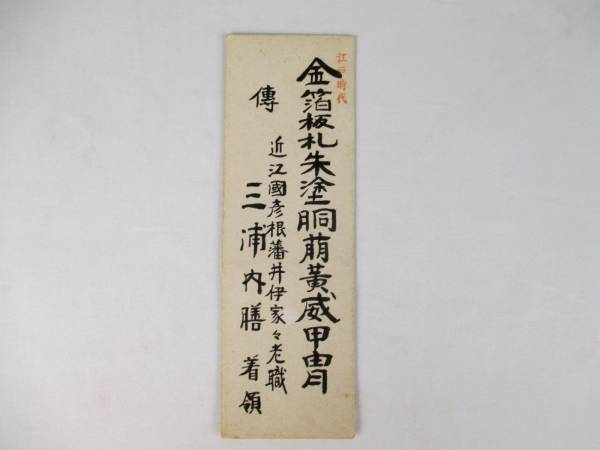 江戸時代
金箔板札朱塗胴萠黃威甲冑
傳
近江國彦根藩井伊家々老職
三浦内膳着領